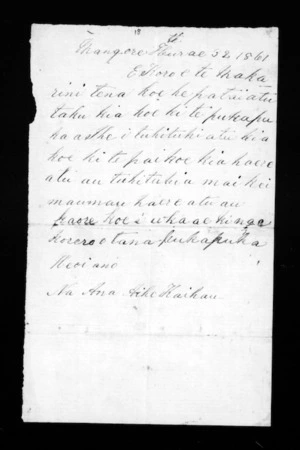 Mangere Hurae 32 1861
E Koro e te Maka
rini tena koe he patai atu
taku kia koe ki te pukapu
ka a i tuhituhi atu kia
koe ki te pai koe kia haere
atu au tuhituhia mai kei
maumau haere atu au
kaore koe i whaae ki nga
korero o tana pukapuka
Heoi ano
Na Ana Kaihau